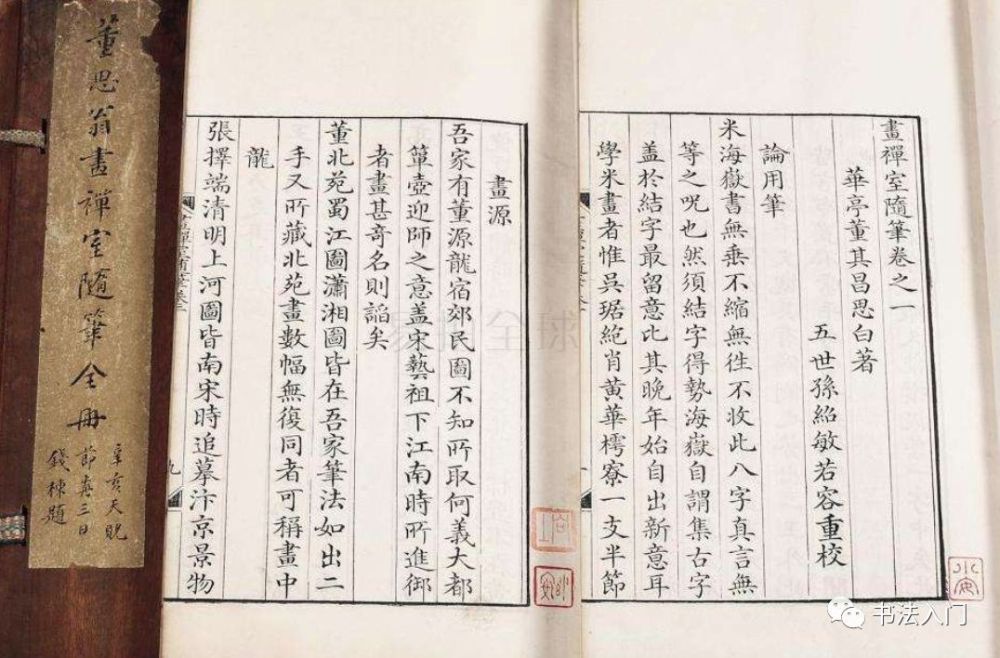 畫禪室隨筆卷之一
華亭董其昌思白著
五世孫紹敏若容重校
論用筆
米海嶽書無垂不縮無徃不收此八字真言無
等之呪也然須結字得勢海嶽自謂集古字
蓋於結字最留意比其晚年始自出新意耳
學米畫者惟吳琚絶肖黃華樗寮一支半節
畫源
吾家有董源龍宿郊民圖不知所取何義大都
簞壺迎師之意蓋宋藝祖下江南時所進御
者畫甚奇名則謟矣
董北苑蜀江圖瀟湘圖皆在吾家筆法如出二
手又所藏北苑畫數幅無復同者可稱畫中
龍
張擇端清明上河圖皆南宋時追摹汴京景物
九
董思翁畫禪室隨筆全冊
辛亥天貺
節後三日
錢棟題
书法入门